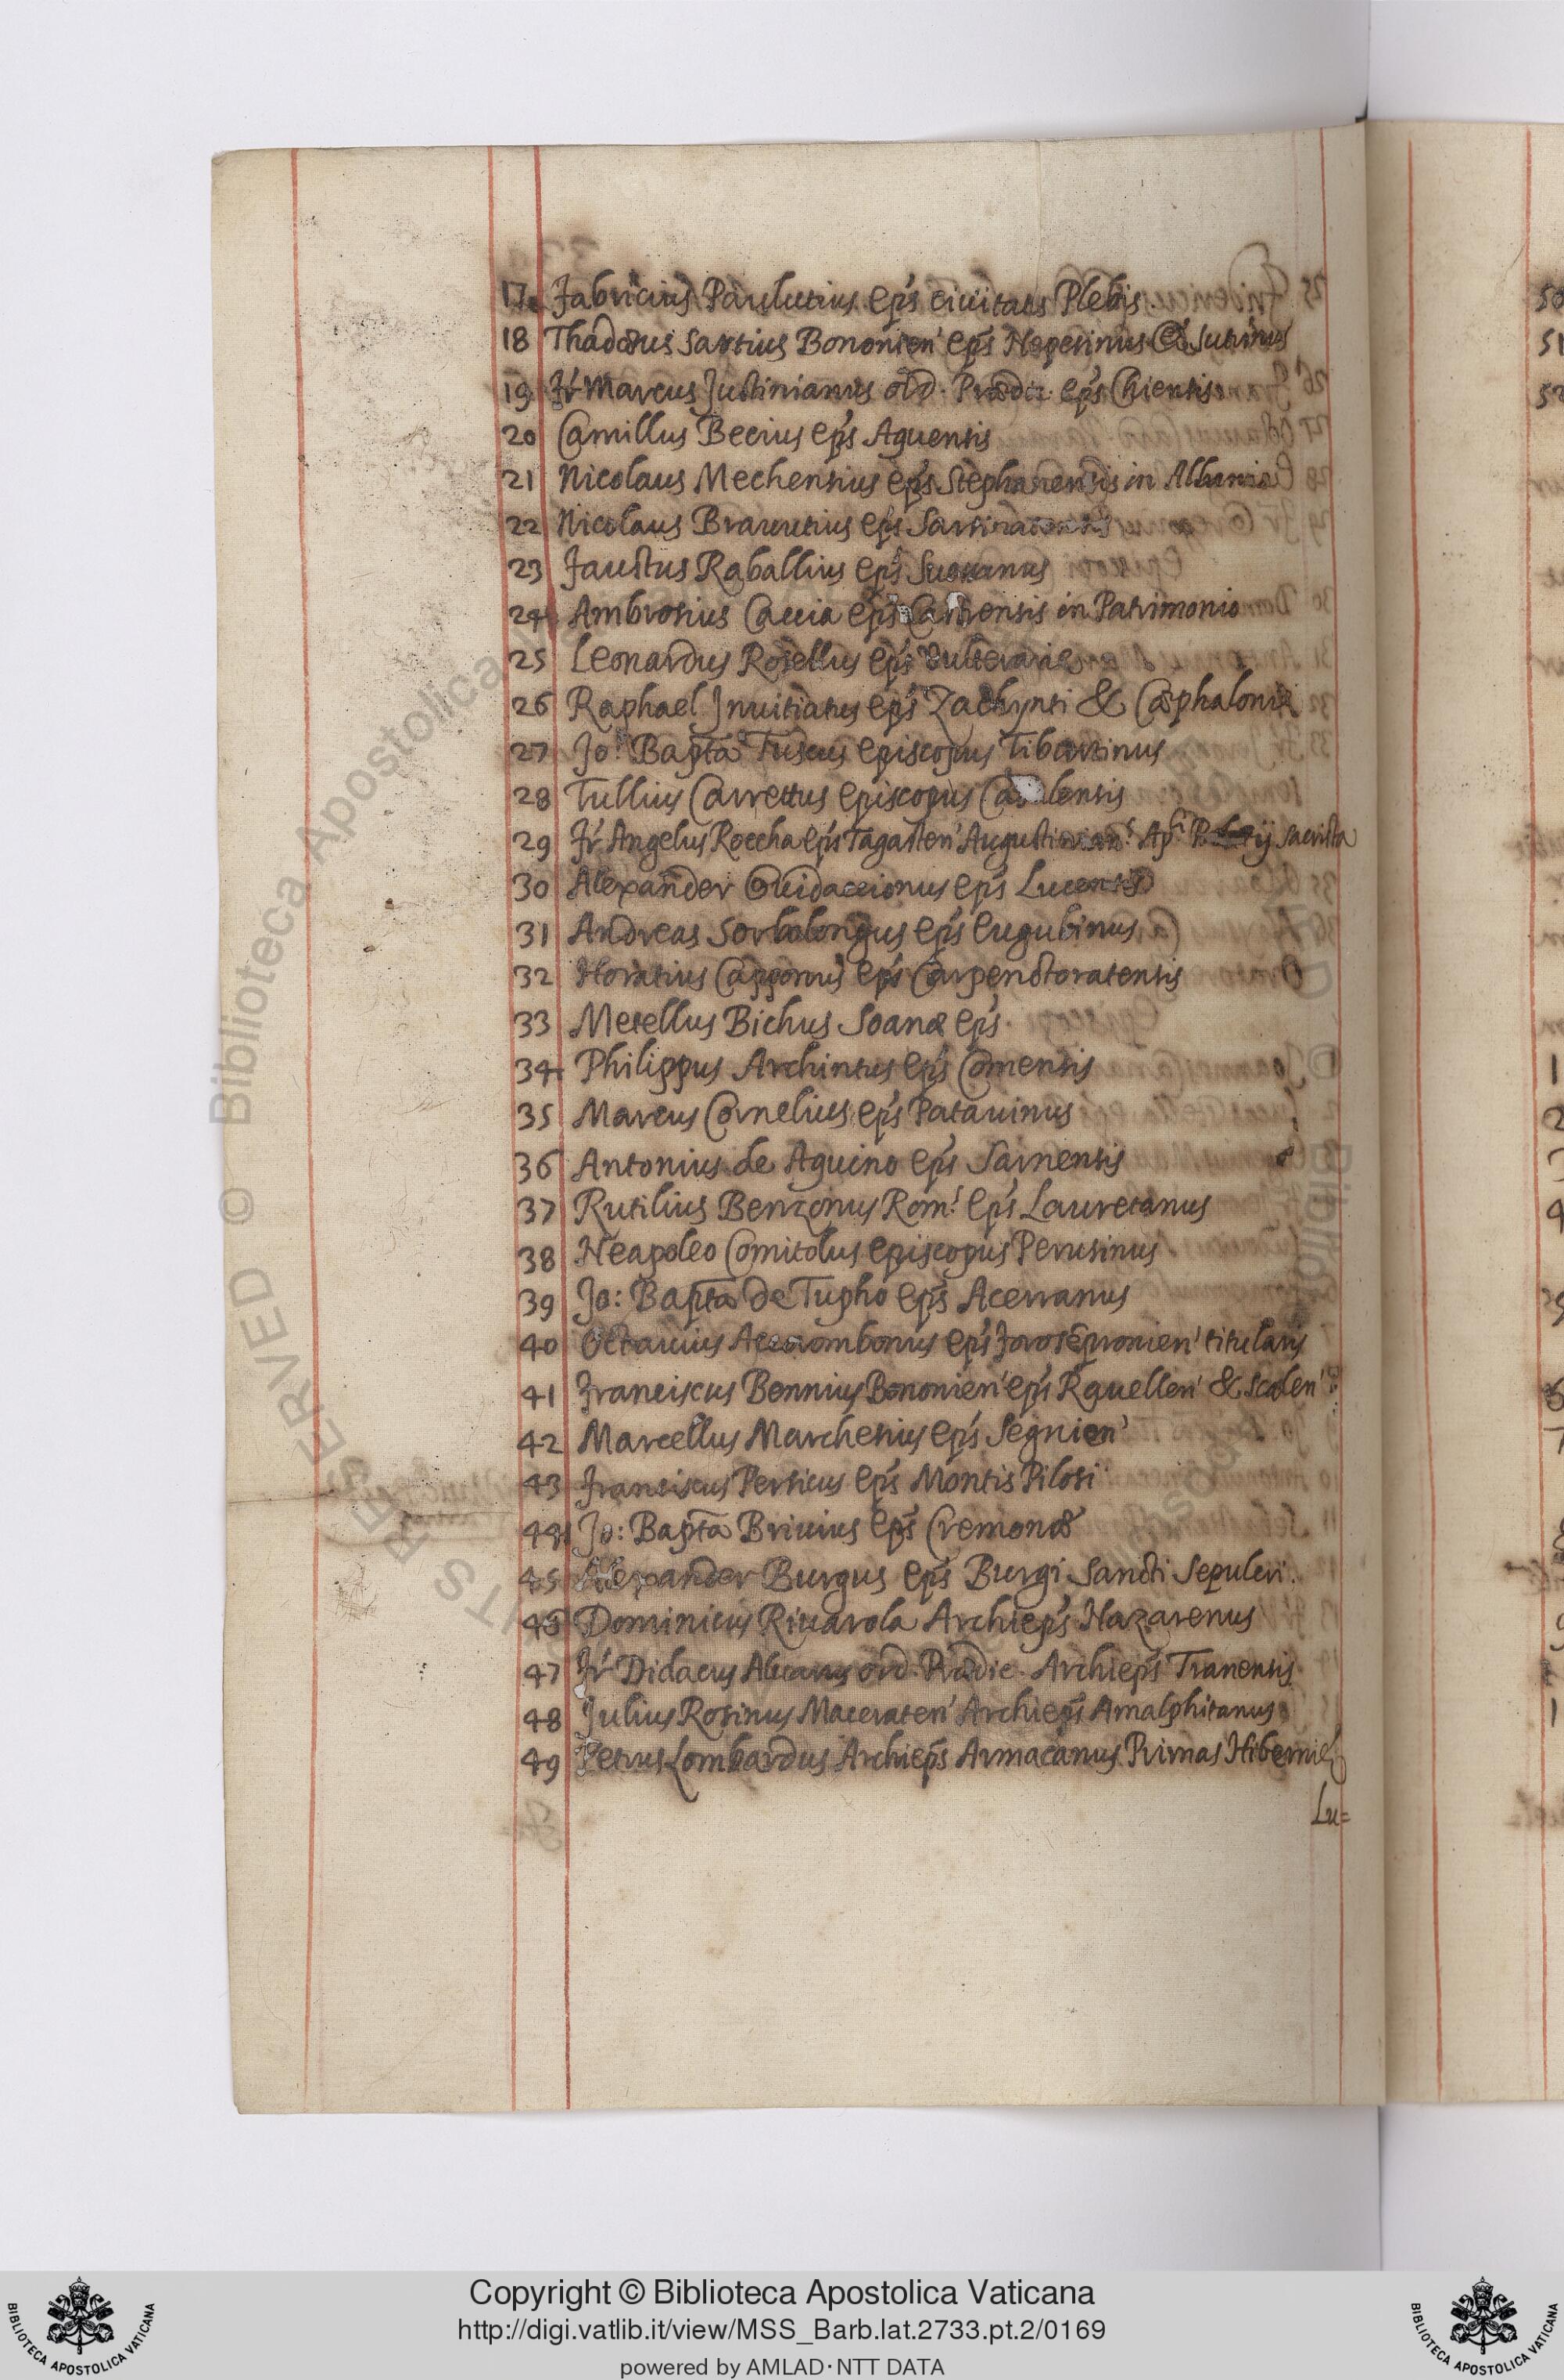 17 Fabricius Paulutius ep̄s ciuitatis Plebis
18 Thadæus Sartius Bononien' ep̄s Nepesinus et Sutrinus
19 Fr̄ Marcus Justinianus ord. Prædic. ep̄s Chiensis
20 Camillus Beccius ep̄s Aquensis
21 Nicolaus Mechensius ep̄s Stephanensis in Albania
22 Nicolaus Brauutius ep̄s Sarsinatensis
23 Faustus Raballius ep̄s
24 Ambrosius Caccia ep̄s Castrensis in Patrimonio
25 Leonardus Rosellus ep̄s Vulterariæ
26 Raphael Inuitiatus ep̄s Zachynti & Cæphaloniæ
27 Jo: Bap̄ta Tuscus episcopus Tiburtinus
28 Tullius Carrettus episcopus Casalensis
29 Fr̄ Angelus Roccha ep̄s Tagasten' Augustinian.s Ap.ci sacrista
30 Alexander Guidaccionus ep̄s Lucensis
31 Andreas Sorbolongus ep̄s Eugubinus
32 Horatius Capponus ep̄s Carpenctoratensis
33 Metellus Bichus Soanæ ep̄s
34 Philippus Archintus ep̄s Comensis
35 Marcus Cornelius ep̄s Patauinus
36 Antonius de Aquino ep̄s Sarnensis
37 Rutilius Benzonus Rom.s ep̄s Lauretanus
38 Neapoleo Comitolus episcopus Perusinus
39 Jo: Bap̄ta de Tupho ep̄s Acerranus
40 Octauius Accorombonus ep̄s Forosempronien' titularis
41 Franciscus Bennius Bononien' ep̄s Rauellen' & Scalen'
42 Marcellus Marchesius ep̄s Segnien'
43 Franciscus Persicus ep̄s Montis Pilosi
44 Jo: Bap̄ta Briuius ep̄s Cremonæ
45 Alexander Burgus ep̄s Burgi Sancti Sepulcri.
46 Dominicus Riuarola Archiep̄s Nazarenus
47 Fr̄ Didacus Aluarus ord. Prædic. Archiep̄s Tranensis
48 Julius Rosinus Maceraten' Archiep̄s Amalphitanus
49 Petrus Lombardus Archiep̄s Armacanus Primas Hiberniæ
Lu=
50
51
52
1
2
4
Copyright © Biblioteca Apostolica Vaticana
http://digi.vatlib.it/view/MSS_Barb.lat.2733.pt.2/0169
powered by AMLAD·NTT DATA
BIBLIOTECA APOSTOLICA VATICANA
BIBLIOTECA APOSTOLICA VATICANA